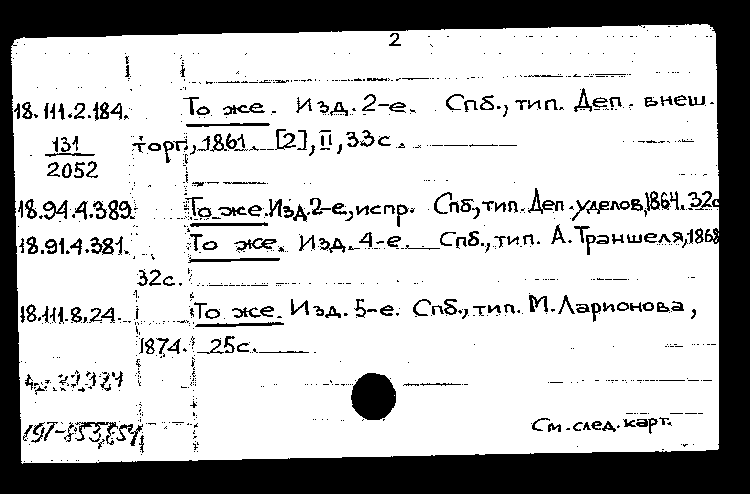 2
18.111.2.184. То же. Изд. 2-е. Спб., тип. Деп. внеш.
131 торг., 1861. [2], II, 33с.
2052
18.94.4.389. То же. Изд. 2-е, испр. Спб., тип. Деп. уделов, 1864. 32с
18.91.4.381. То же. Изд. 4-е. Спб., тип. А. Траншеля, 1868
32с.
18.111.8.24. То же. Изд. 5-е. Спб., тип. М. Ларионова,
1874. 25с.
См. след. карт.